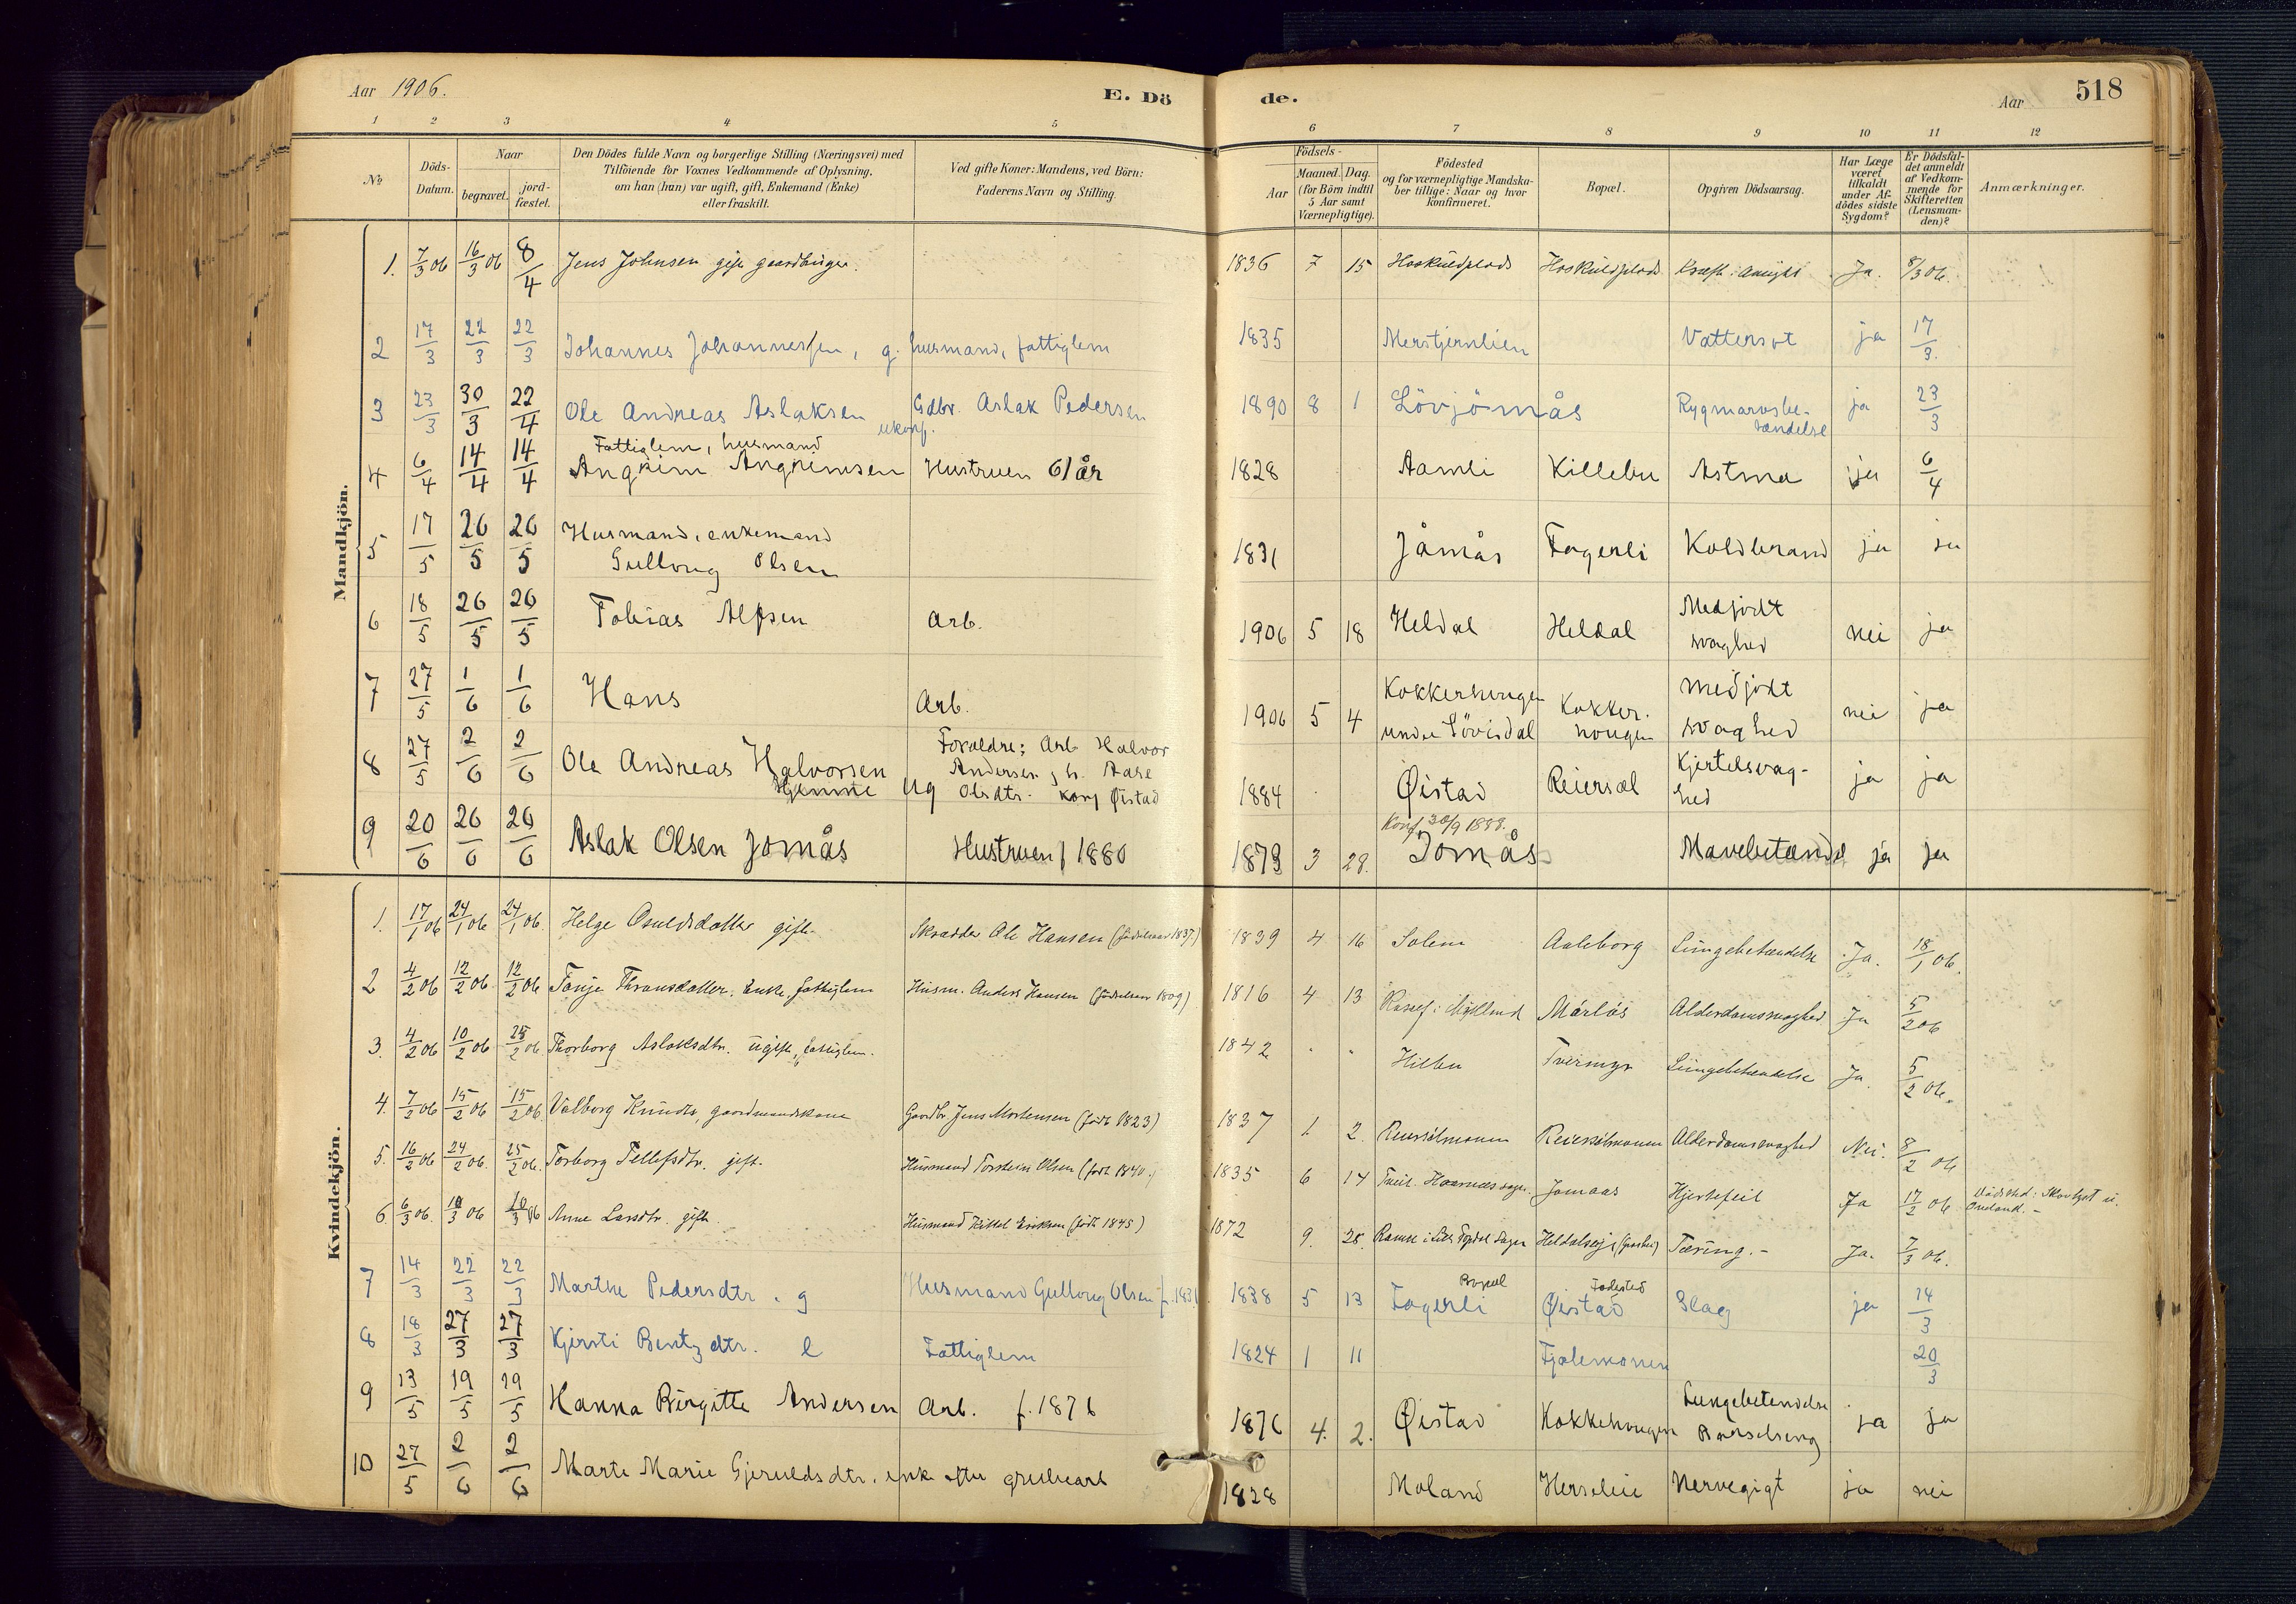 Aar 1906. E. Dö
de. Aar 518
1 2 3 4 5
6 7 8 9 10 11 12
No
Döds-Datum.
Naar
begravet.
jordfæstet.
Den Dödes fulde Navn og borgerlige Stilling (Næringsvei) med
Tilföiende for Voxnes Vedkommende af Oplysning,
om han (hun) var ugift, gift, Enkemand (Enke)
eller fraskilt.
Ved gifte Koner: Mandens, ved Börn:
Faderens Navn og Stilling.
Födsels-
Aar
Maaned. Dag.
(for Börn indtil
5 Aar samt
Værnepligtige).
Födested
og for værnepligtige Mandska-
ber tillige: Naar og hvor
konfirmeret.
Bopæl.
Opgiven Dödsaarsag.
Har Læge
været
tilkaldt
under Af-
dödes sidste
Sygdom?
Er Dödsfal-
det anmeldt
af Vedkom-
mende for
Skifteretten
(Lensman-
den)?
Anmærkninger.
Mandkjön.
1. 7/3 06 16/3 06 8/4 Jens Johnsen gift gaardbruger. 1836 7 15 Ja. 8/3 06.
2 17/3 22/3 22/3 Johannes Johannessen, g. husmand, fattiglem 1835 Merstjernlien Vattersot ja 17/3.
3 23/3 30/3 22/4 Ole Andreas Aslaksen ukonf. Gdbr. Aslak Pedersen 1890 8 1 Lövjömås Rygmarvsbe-
tændelse ja 23/3
Fattiglem, husmand
4 6/4 14/4 14/4 Angrim Angrimsen Hustruen 61 år 1828 Aamli Killebu Astma ja 6/4
5 17/5 26/5 26/5 Husmand, enkemand
Gullong Olsen 1831 Jåmås Fagerli Koldbrand ja ja
6 18/5 26/5 26/5 Tobias Alfsen Arb. 1906 5 18 Heldal Heldal Medfödt
svaghed nei ja
7 27/5 1/6 1/6 Hans Arb. 1906 5 4 Kokkerhougen
under Lövisdal Kokker-
hougen medfödt
svaghed nei ja
8 27/5 2/6 2/6 Ole Andreas Halvorsen
Hjemme ug Forældre: Arb Halvor
Andersen, h. Aase
Olsdtr. konf Øistad 1884 Øistad Reiersøl Kjertelsvag-
hed ja ja
9 20/6 26/6 26/6 Aslak Olsen Jomås Hustruen f 1880 1873 3 28. Konf. 30/9 1888.
Jomås Mavebetænd ja ja
Kvindekjön.
1. 17/1 06 24/1 06 24/1 06. Helge Osuldsdatter gift. Skrædder Ole Hansen (födselsaar 1837.) 1839 4 16 Solem Aaleborg Lungebetændelse Ja. 18/1 06.
2 4/2 06 12/2 06 12/2 06 Tonje Thronsdatter. Enke, fattiglem Husm. Anders Hansen (födselsaar 1809) 1816 4 13 Mårlås Alderdomssvaghed. Ja 5/2 06
3. 4/2 06 10/2 06 25/2 06. Thorborg Aslaksdtr. ugift, fattiglem. 1842 Hilbu Tveimyr Lungebetændelse Ja. 5/2 06.
4. 7/2 06 15/2 06 15/2 06. Valborg Knudtr, gaardmandskone Gaardbr. Jens Mortensen (födt 1823) 1837 1 2. Reiersölmonen Reiersölmonen Alderdomssvaghed Nei. 8/2 06
5. 16/2 06 24/2 06. 25/2 06. Torborg Tellefsdtr. gift. Husmand Torstein Olsen (födt 1840.) 1835 6 14 Jomaas Hjertefeil Ja 17/2 06
6. 6/3 06. 10/3 06 10/3 06 Anne Larsdtr. gift. Husmand Kittel Eriksen (födt 1845) 1872 9. 28. Tæring.- Ja. 7/3 06.
7 14/3 22/3 22/3 Marthe Pedersdtr. g Husmand Gullong Olsen f. 1831. 1838 5 13 Bopæl
Fagerli Fødested
Øistad Slag ja 14/3
8 18/3 27/3 27/3 Kjersti Bentzdtr. e Fattiglem 1824 1 11 Fjalemonen 20/3
9 13/5 19/5 19/5 Hanna Birgitte Andersen Arb. f. 1876 1876 4. 2. Øistad Kokkehougen Lungebetendelse
Barselseng ja ja
10 27/5 2/6 2/6 Marte Marie Gjeruldsdtr. enke efter grubearb 1828 Moland Herselie Nervegigt ja nei